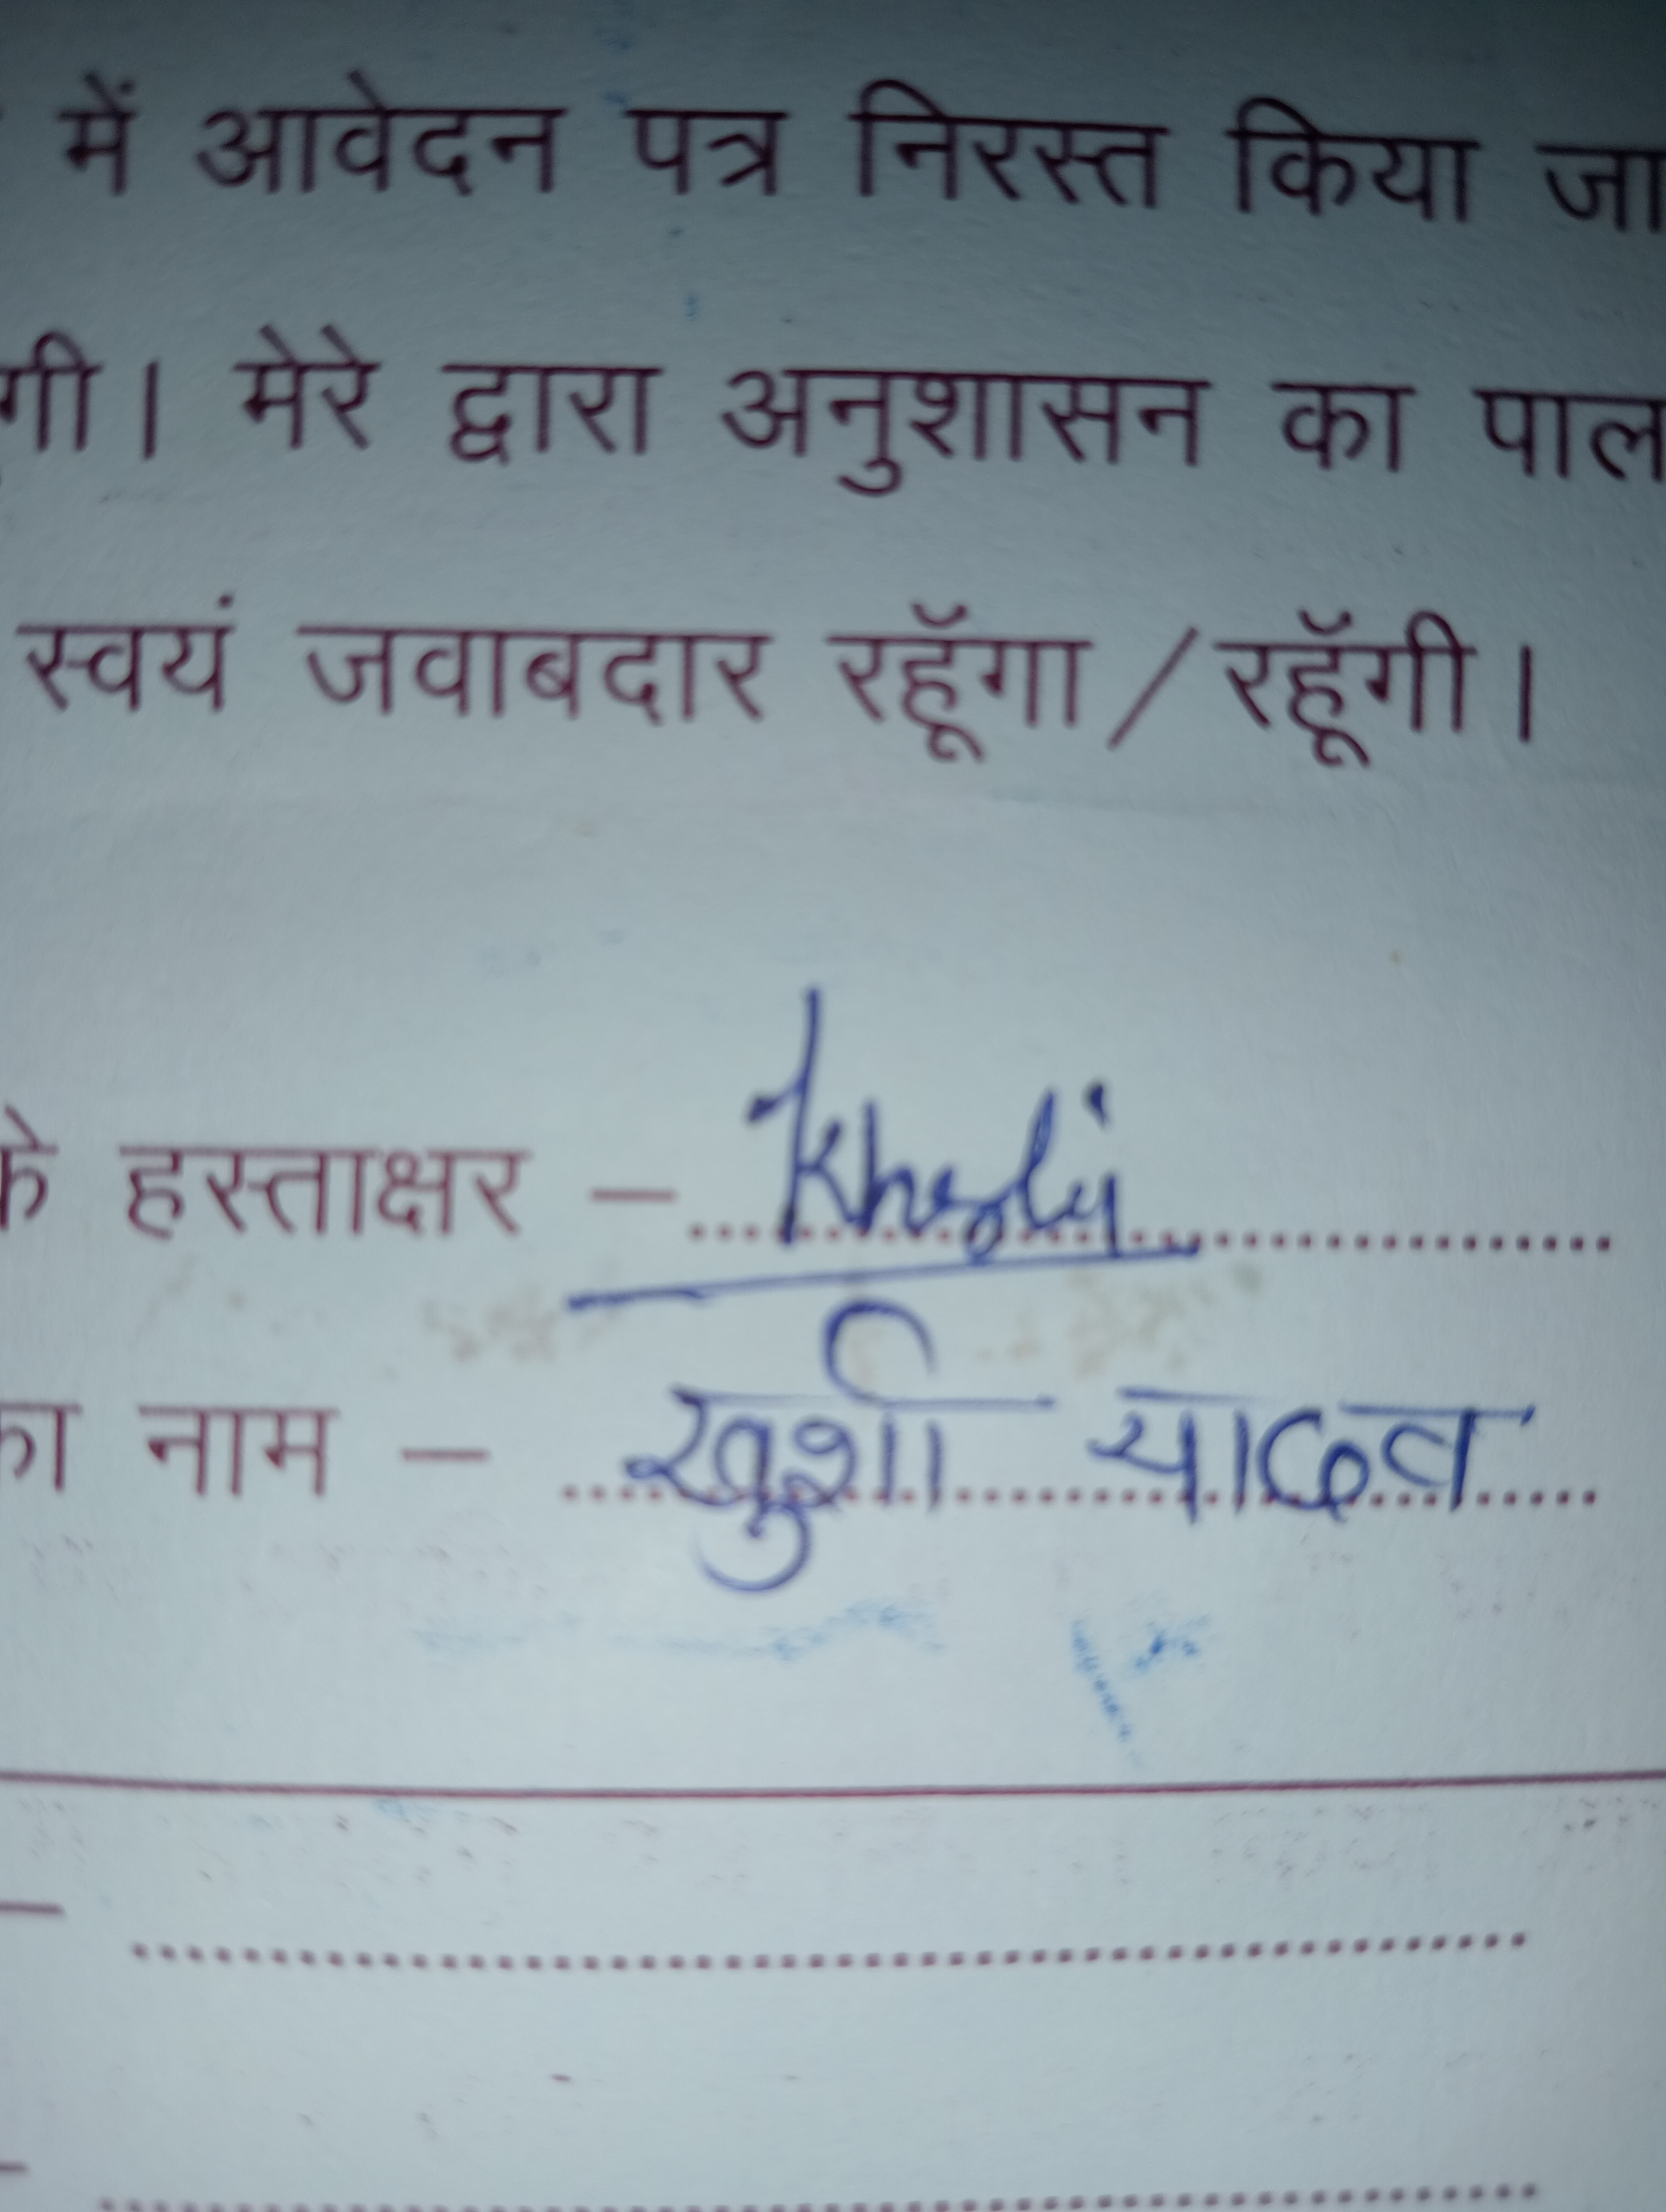 में आवेदन पत्र निरस्त किया जा
गी। मेरे द्वारा अनुशासन का पाल
स्वयं जवाबदार रहूॅगा / रहूॅगी।
के हस्ताक्षर –
का नाम – खुशी यादव